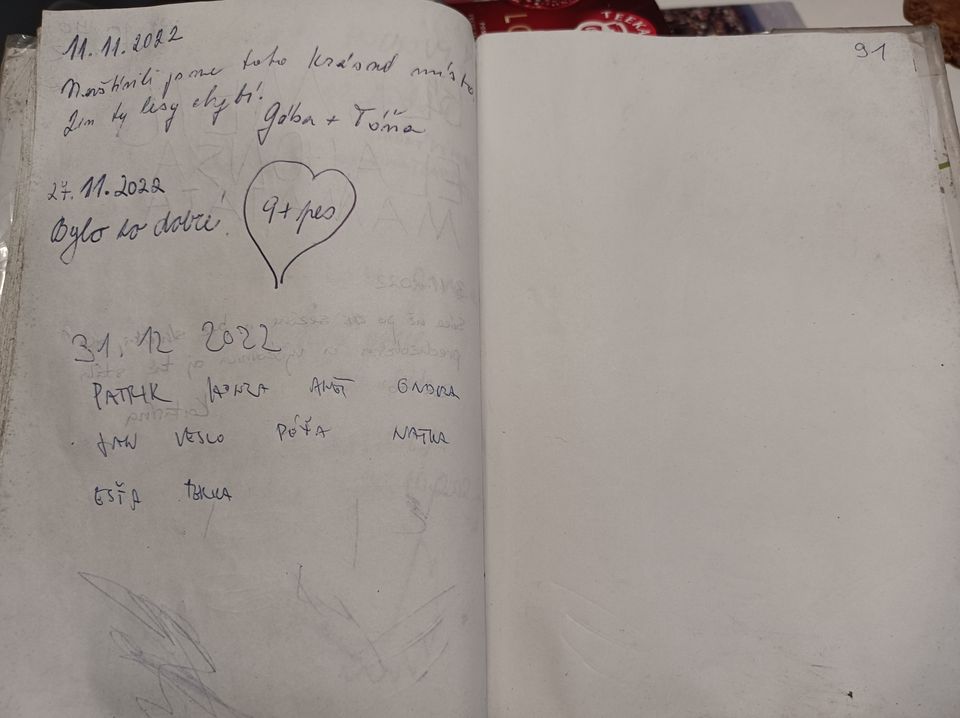 11.11.2022
Navštívili jsme toto krásné místo
Jen ty lesy chybí.
Gába + Tóňa
27.11.2022
Bylo to dobré!
9+pes
31.12 2022
PATRIK HONZA ANET ONDRA
JAN VESLO PÉŤA NATKA
ESŤA TERKA
91
TEEKA